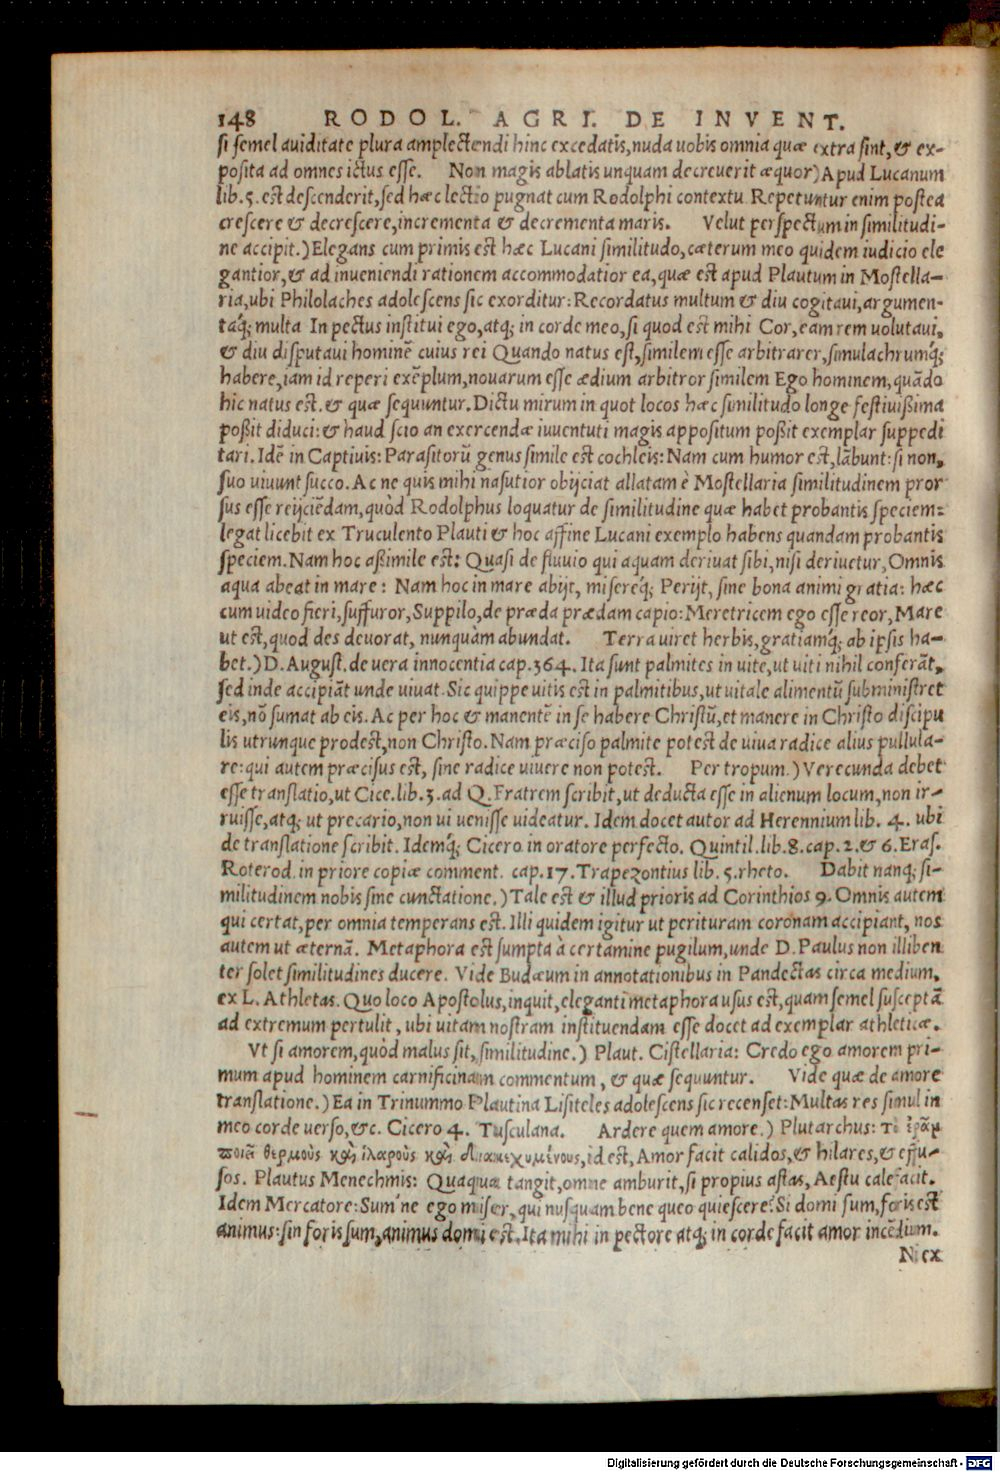 148 RODOL. AGRI. DE INVENT.
si semel auiditate plura amplectendi hinc excedatis,nuda uobis omnia quæ extra sint,& ex-
posita ad omnes ictus esse. Non magis ablatis unquam decreuerit æquor)Apud Lucanum
lib.5.est descenderit,sed hæc lectio pugnat cum Rodolphi contextu. Repetuntur enim postea
crescere & decrescere,incrementa & decrementa maris. Velut perspectum in similitudi-
ne accipit.)Elegans cum primis est hæc Lucani similitudo,cæterum meo quidem iudicio ele
gantior,& ad inueniendi rationem accommodatior ea,quæ est apud Plautum in Mostella-
ria,ubi Philolaches adolescens sic exorditur:Recordatus multum & diu cogitaui,argumen-
táq; multa In pectus institui ego,atq; in corde meo,si quod est mihi Cor,eam rem uolutaui,
& diu disputaui hominē cuius rei Quando natus est,similem esse arbitrarer,simulachrumq́;
habere,iam id reperi exēplum,nouarum esse ædium arbitror similem Ego hominem,quādo
hic natus est.& quæ sequuntur.Dictu mirum in quot locos hæc similitudo longe festiuißima
poßit diduci:& haud scio an exercendæ iuuentuti magis appositum poßit exemplar suppedi
tari.Idē in Captiuis:Parasitorū genus simile est cochleis:Nam cum humor est,lābunt:si non,
suo uiuunt succo.Ac ne quis mihi nasutior obijciat allatam è Mostellaria similitudinem pror
sus esse reijciēdam,quòd Rodolphus loquatur de similitudine quæ habet probantis speciem:
legat licebit ex Truculento Plauti & hoc affine Lucani exemplo habens quandam probantis
speciem.Nam hoc aßimile est: Quasi de fluuio qui aquam deriuat sibi,nisi deriuetur,Omnis
aqua abeat in mare: Nam hoc in mare abijt, misereq́; Perijt, sine bona animi gratia: hæc
cum uideo fieri,suffuror,Suppilo,de præda prædam capio:Meretricem ego esse reor,Mare
ut est,quod des deuorat, nunquàm abundat. Terra uiret herbis,gratiamq́; ab ipsis ha-
bet.)D.August.de uera innocentia cap.364.Ita sunt palmites in uite,ut uiti nihil conferāt,
sed inde accipiāt unde uiuāt.Sic quippe uitis est in palmitibus,ut uitale alimentū subministret
eis,nō sumat ab eis.Ac per hoc & manentē in se habere Christū,et manere in Christo discipu
lis utrunque prodest,non Christo.Nam præciso palmite potest de uiua radice alius pullula-
re:qui autem præcisus est, sine radice uiuere non potest. Per tropum.)Verecunda debet
esse translatio,ut Cice.lib.3.ad Q.Fratrem scribit,ut deducta esse in alienum locum,non ir-
ruisse,atq; ut precario,non ui uenisse uideatur. Idem docet autor ad Herennium lib. 4. ubi
de translatione scribit. Idemq́; Cicero in oratore perfecto. Quintil.lib.8.cap.2.& 6.Eras.
Roterod.in priore copiæ comment. cap.17.Trapezontius lib.5.rheto. Dabit nanq; si-
militudinem nobis sine cunctatione.)Tale est & illud prioris ad Corinthios 9.Omnis autem
qui certat,per omnia temperans est.Illi quidem igitur ut perituram coronam accipiant, nos
autem ut æternā. Metaphora est sumpta à certamine pugilum,unde D.Paulus non illiben
ter solet similitudines ducere. Vide Budæum in annotationibus in Pandectas circa medium,
ex L. Athletas.Quo loco Apostolus,inquit,eleganti metaphora usus est,quam semel susceptā
ad extremum pertulit, ubi uitam nostram instituendam esse docet ad exemplar athleticæ.
Vt si amorem,quòd malus sit,similitudine.) Plaut. Cistellaria: Credo ego amorem pri-
mum apud hominem carnificinam commentum, & quæ sequuntur. Vide quæ de amore
translatione.)Ea in Trinummo Plautina Lisiteles adolescens sic recenset:Multas res simul in
meo corde uerso,&c. Cicero 4. Tusculana. Ardere quem amore.) Plutarchus: τὸ ἐρᾶν
ποιεῖ θερμοὺς καὶ ἱλαροὺς καὶ διακεχυμένους,id est,Amor facit calidos,& hilares,& effu-
sos. Plautus Menechmis: Quaqua tangit,omne amburit,si propius astas, Aestu calefacit.
Idem Mercatore:Sum'ne ego miser,qui nusquam bene queo quiescere?Si domi sum,foris est
animus:sin foris sum,animus domi est.Ita mihi in pectore atq; in corde facit amor incēdium.
N:ex
Digitalisierung gefördert durch die Deutsche Forschungsgemeinschaft - DFG